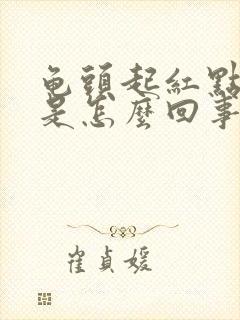 龟頭起紅點
是怎麼回事
崔貞媛